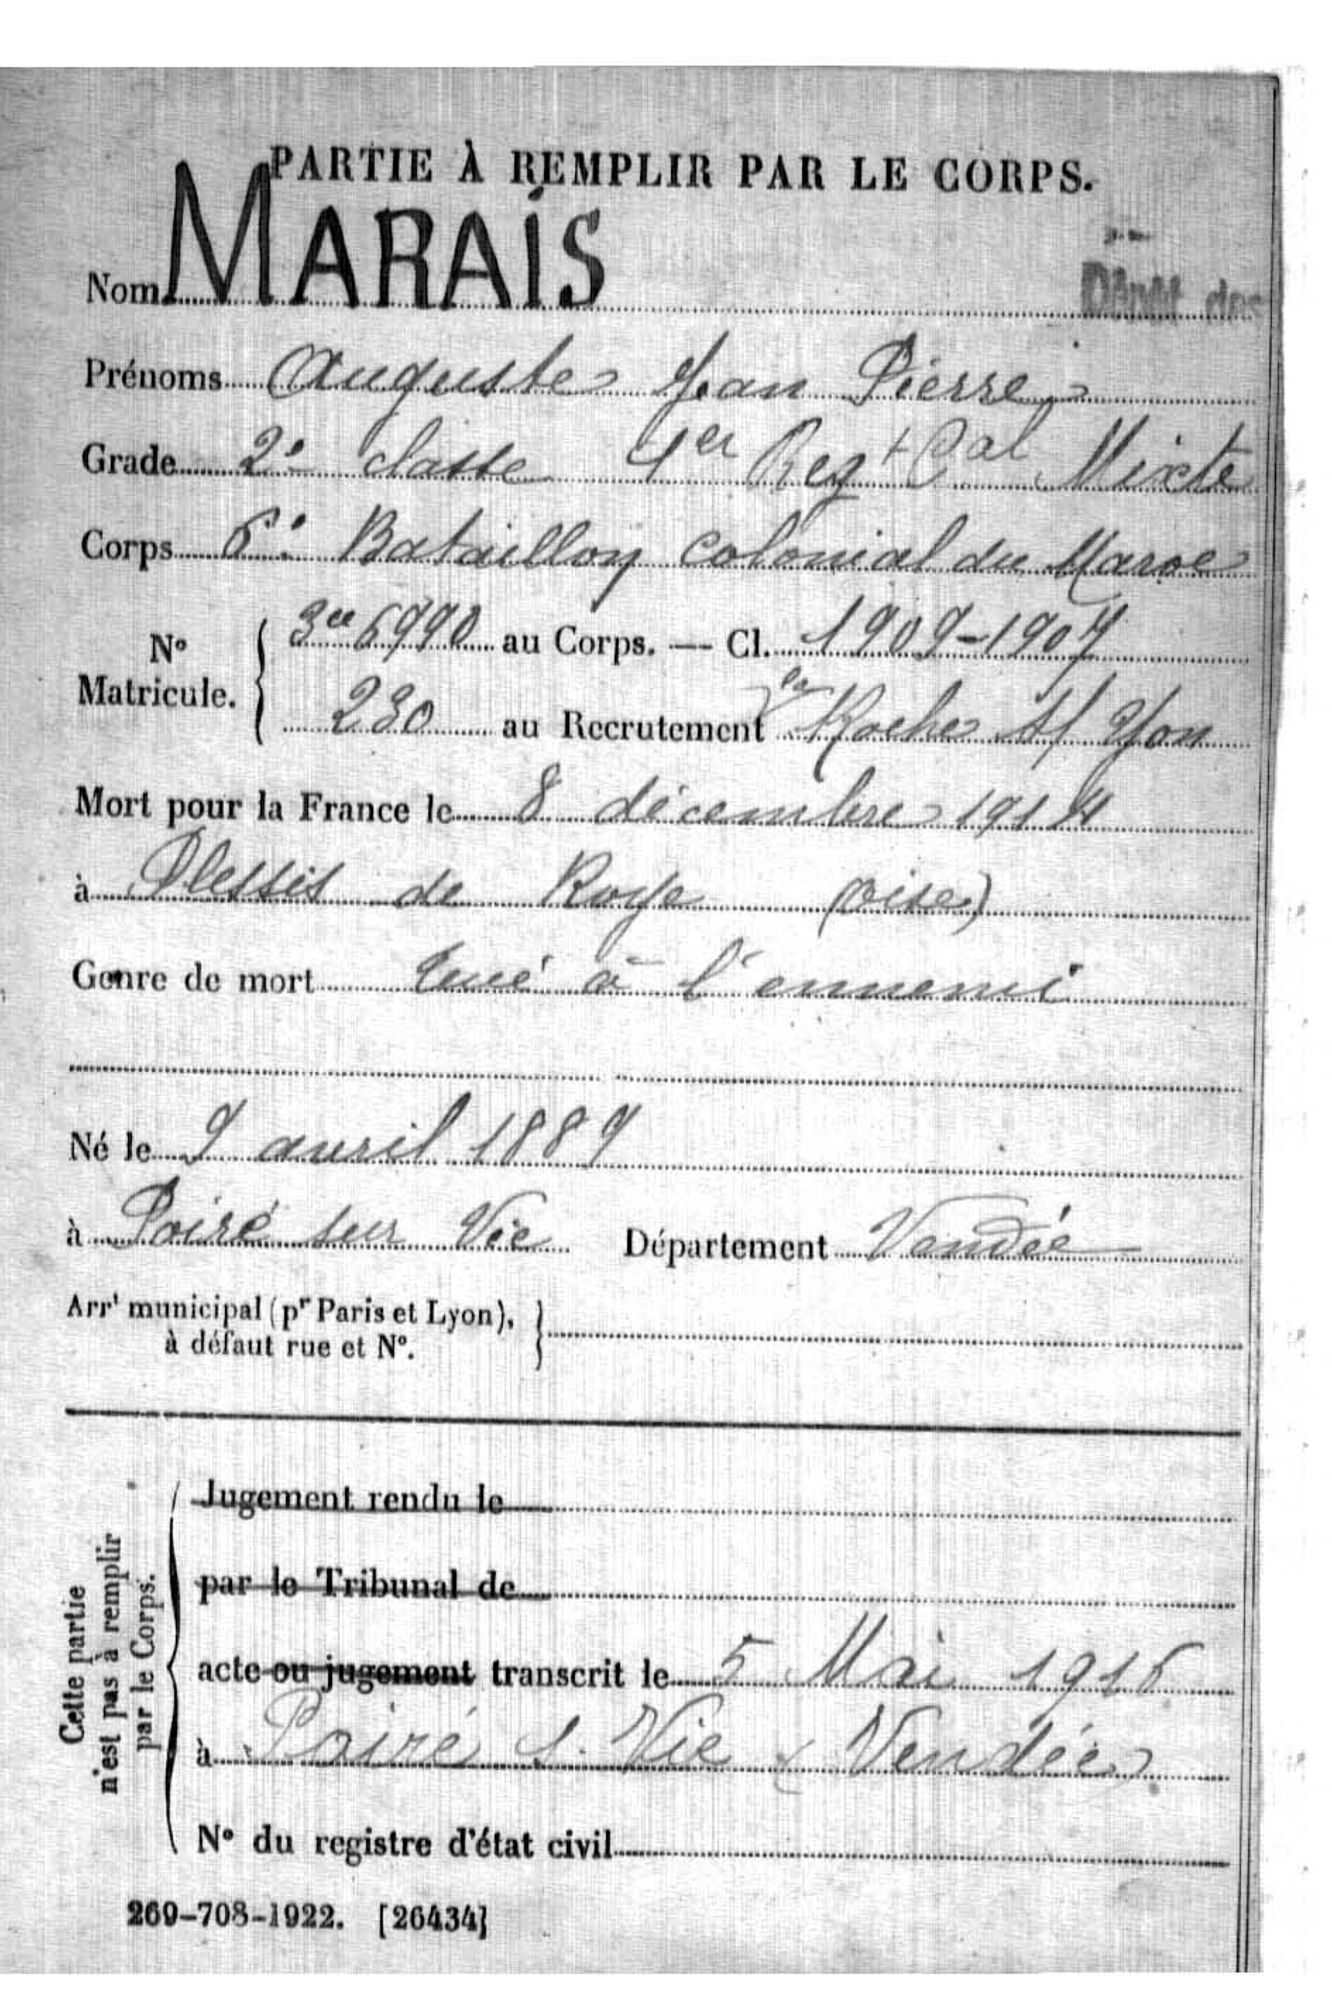 PARTIE À REMPLIR PAR LE CORPS.
Nom MARAIS
Dépôt des
Prénoms Auguste Jean Pierre
Grade 2e classe 1er Regt Cal Mixte
Corps 6e Bataillon colonial du Maroc
N° Matricule. { 3ce 6990 au Corps. — Cl. 1909-1907
230 au Recrutement la Roche s/ Yon
Mort pour la France le 8 décembre 1914
à Plessis de Roye (oise)
Genre de mort tué à l'ennemi
Né le 9 avril 1889
à Poiré sur Vie Département Vendée
Arrt municipal (pr Paris et Lyon),
à défaut rue et N°.
Cette partie
n'est pas à remplir
par le Corps.
Jugement rendu le
par le Tribunal de
acte ou jugement transcrit le 5 Mai 1915
à Poiré s. Vie (Vendée)
N° du registre d'état civil
269-708-1922. [26434]